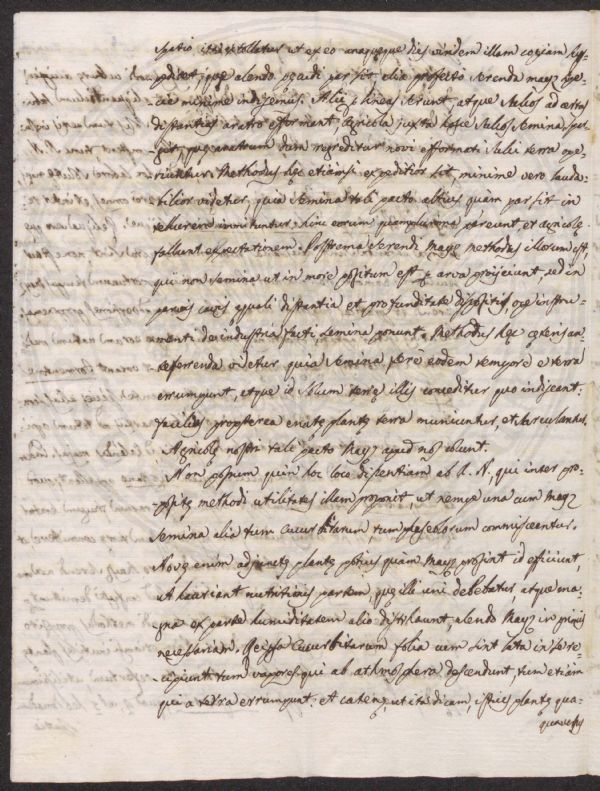 spatio ita extollatur ut ex eo unaquaque dies viridem illam copiam sup-
peditet, quę alendo prędii par sit alia profecto serenda mayz spe-
cie minime indigemus. Alii p lineas serunt, atque sulcos ad certas
distantias aratro efformant, Agricola juxta hosce sulcos semina spar-
git, quę aratrum dum regreditur novi efformati sulci terra ope-
riuntur. Methodus hęc etiamsi expeditior sit, minime vero lauda-
bilior videtur, quia semina tali pacto altius quam par sit in
tellurem immittuntur, hinc eorum quamplurima pereunt et agricolę
fallunt expectationem. Postrema serendi Mayz methodus illorum est,
qui non semina ut in more positum est p arva projiciunt, sed in
parvis cavis ęquali distantia et profunditate dispositis, ope instru-
menti de industria facti semina ponunt. Methodus hęc cęteris an-
teferenda videtur quia semina fere eodem tempore e terra
errumpunt, atque id solum terrę illis conceditur quo indigeant:
facilius propterea enatę plantę terra muniuntur, et sarculantur.
Agricolę nostri tali pacto Mayz apud nos colunt.
Non possum quin hoc loco dissentiam ab A. N. qui inter pro-
positę methodi utilitates illam proponit, ut nempe una cum mayz
semina alia tum cucurbitarum, tum phaseolorum commisceantur.
Novę enim adjunctę plantę potius quam Mayz prosint id efficiunt,
ut hauriant nutritionis partem quę illi uni debebatur atque ma-
gna ex parte humiditatem alio distrahunt, alendo Mayz in primis
necessariam. Reipsa cucurbitarum folia cum sint lata in se re-
cipiunt tum vapores qui ab athmosphera descendunt, tum etiam
qui a terra errumpunt: et catenę, ut ita dicam, istius plantę qua-
quaversus